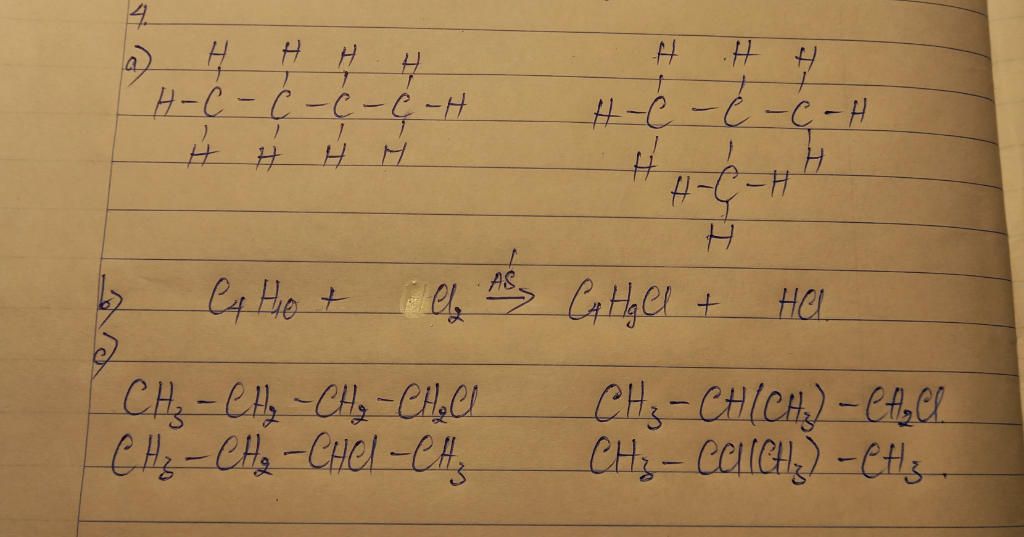 4.
a) H H H H H H H
H-C-C-C-C-H H-C-C-C-H
H H H H H H
H-C-H
H
b) C4H10 + Cl2 AS→ C4H9Cl + HCl
c)
CH3-CH2-CH2-CH2Cl CH3-CH(CH3)-CH2Cl.
CH3-CH2-CHCl-CH3 CH3-CCl(CH3)-CH3.